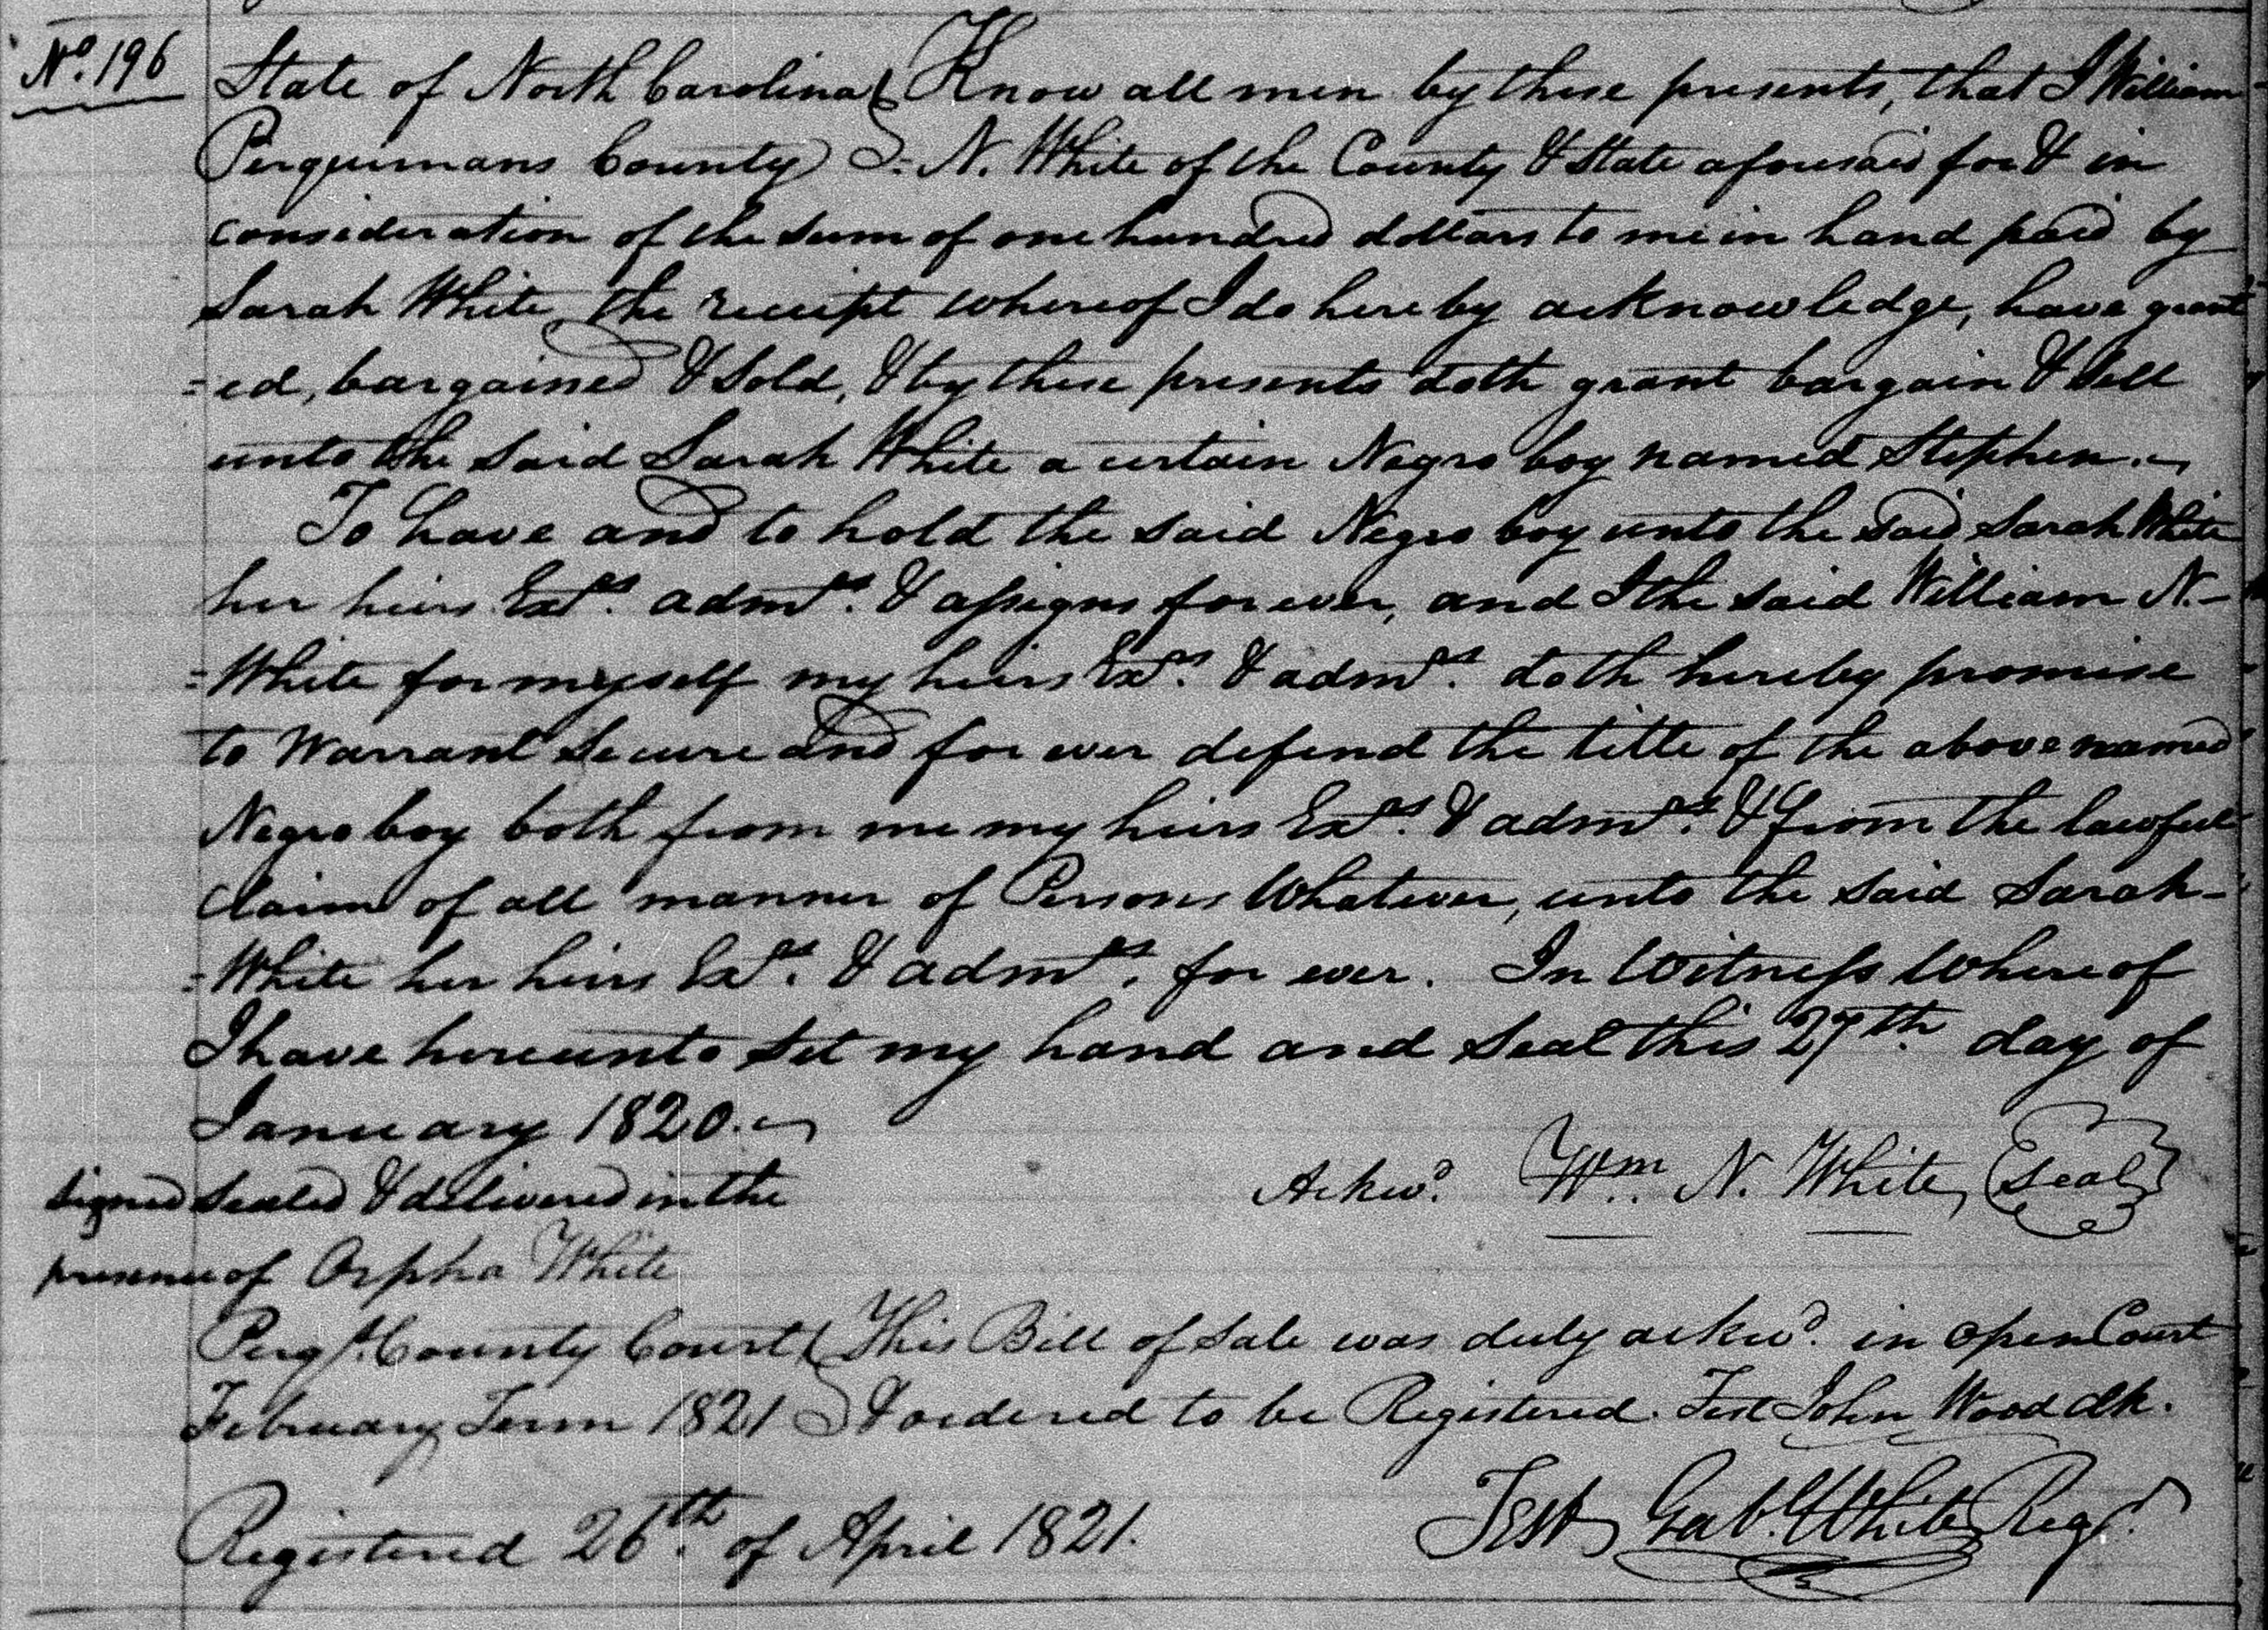 No. 196
State of North Carolina } Know all men by these presents, that I William
Perquimans County } =N. White of the County & State aforesaid for & in
consideration of the sum of one hundred dollars to me in hand paid by
Sarah White, the receipt whereof I do hereby acknowledge, have grant
=ed, bargained & Sold, & by these presents doth grant bargain & Sell
unto the said Sarah White a certain Negro boy named Stephen.
To have and to hold the said Negro boy unto the said Sarah White
her heirs Exrs. admrs. & assigns for ever, and I the said William N.-
=White for myself my heirs Exrs. & admrs. doth hereby promise
to Warrant Secure and for ever defend the title of the above named
Negro boy both from me my heirs Exrs. & admrs. & from the lawful
Claim of all manner of Persons Whatever, unto the said Sarah-
=White her heirs Exrs. & admrs. for ever. In Witness Where of
I have hereunto Set my hand and Seal this 27th day of
January 1820.
Signed Sealed & delivered in the
Ackwd. Wm. N. White, (Seal)
presence of Orpha White
Perqs. County Court } This Bill of Sale was duly ackwd. in open Court
February Term 1821 } & ordered to be Registered. Test John Wood Clk.
Registered 26th. of April 1821.
Test Gab. White Regr.